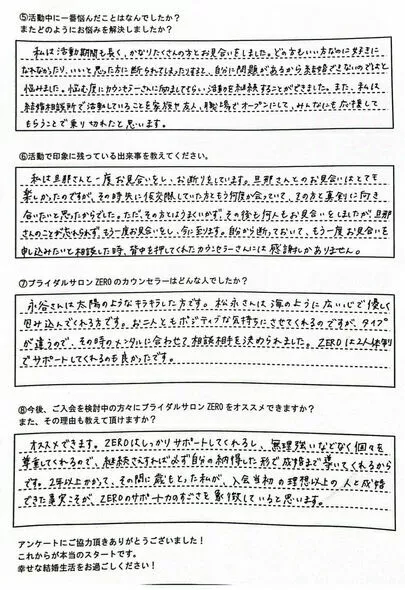 ⑤活動中に一番悩んだことはなんでしたか？
またどのようにお悩みを解決しましたか？
私は活動期間も長く、かなりたくさんの方とお見合いをしました。どの方もいい方なのに好きに
なれなかったり、いいと思った方に断られてしまったりすると、自分に問題があるから結婚できないのではと
悩みました。悩む度にカウンセラーさんに励ましてもらい活動を継続することができました。また、私は
結婚相談所で活動していることを家族や友人、職場でオープンにして、みんなに応援して
もらうことで乗り切れたと思います。
⑥活動で印象に残っている出来事を教えてください。
私は旦那さんと一度お見合いをし、お断りをしています。旦那さんとのお見合いはとても
楽しかったのですが、その時先に仮交際していた方ともう何度か会っていて、その方と真剣に向き
合いたいと思ったからでした。ただ、その方とはうまくいかずその後も何人もお見合いをしましたが旦那
さんのことが忘れられずもう一度お見合いをし、今に至ります。自分から断っておいて、もう一度お見合いを
申し込みたいと相談した時、背中を押してくれたカウンセラーさんには感謝しかありません。
⑦ブライダルサロンZEROのカウンセラーはどんな人でしたか？
永谷さんは太陽のようなキラキラした方です。松永さんは海のように広い心で優しく
包み込んでくれる方です。お二人ともポジティブな気持ちにさせてくれるのですが、タイプ
が違うので、その時のメンタルに合わせて相談相手を決められました。ZEROは2人体制
でサポートしてくれるのも良かったです。
⑧今後、ご入会を検討中の方々にブライダルサロンZEROをオススメできますか？
また、その理由も教えて頂けますか？
オススメできます。ZEROはしっかりサポートしてくれるし、無理強いなどなく個々を
尊重してくれるので、継続さえすれば必ず自分の納得した形で成婚まで導いてくれるから
です。2年以上かかって、その間に歳もとった私が、入会当初の理想以上の人と成婚
できた事実こそが、ZEROのサポート力のすごさを象徴していると思います。
アンケートにご協力頂きありがとうございました！
これからが本当のスタートです。
幸せな結婚生活をお過ごしください！